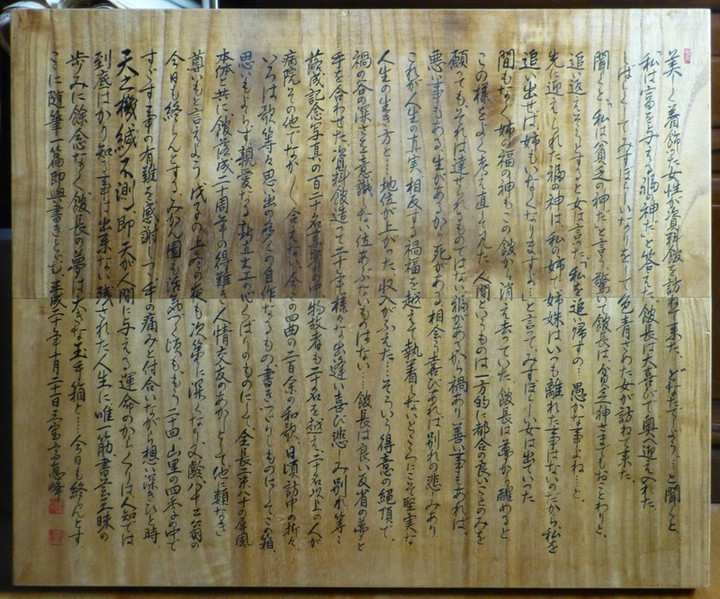 美しく着飾った女性が資料館を訪ねて来た、どなたでしょう…と聞くと、
私は富を与える福の神だと答えた、館長は大喜びで奥へ迎え入れた
しばらくしてみすぼらしいなりをした色青ざめた女が訪ねて来た、
聞くと、私は貧乏の神だと言う、驚いた館長は、貧乏神さまでもおことわりと、
追い返えそうとすると女は言った、私を追い帰すの…愚かな事よね…と、
先に迎えられた福の神は、私の姉で姉妹はいつも離れた事はないのだから、私を
追い出せば姉もいなくなりますよ…と言ってみすぼらしい女は出ていった
間もなく姉の福の神もこの館から消え去っていった、館長は夢から醒めると
この様をよく考え直してみた、人間というものは一方的に都合の良いことのみを
願っても、それは達せられるものではない、福があるから禍あり善い事もあれば、
悪い事もある、生があるから死がある、相会う喜びあれば別れの悲しみあり
これが人生の真実、相反する禍福を越えて執着しないところにこそ堅実な
人生の生き方と…地位が上がった、収入がふえた…そういう得意の絶頂で、
禍の谷の深さを意識しない位あぶないものはない…館長は良い反省の夢と
手を合わせた、資料館造って二十年、様々な出逢い喜び悲しみ別れ等々
落成記念写真の百二十名
物故者も二十名を越え、二十名以上の人が
病院その他でなかなか会えない、
四曲の二百余の和歌、日頃訪中の折々、
いろは歌等々思い出の多くの自作なるもの書きつらしものにして、この箱、
思いもよらず親愛なる
心くばりのものにして、全長
の屏風
本体と共に館落成二十周年の得難き人情交友のあかしとして他に類なき
尊いもと言えよう
の夜も次第に深くなり又齢八十
翁の
今日も終らんとする、みかん園も活気づく頃も、もう二十回、山里の四季の中で
すごす
事の有難さを感謝して、手の痛みと付合いながら想い深きひと時、
天之機緘不測、即天が人間に与える運命のからくりは人知では
到底はかり知る事は出来ない、残された人生に唯一筋、書芸三昧の
歩みに余念なく館長の夢は大きな玉手箱と…今日も終らんとす
ここに随筆一篇即興書きとどむ、平成二十年十月二十二日